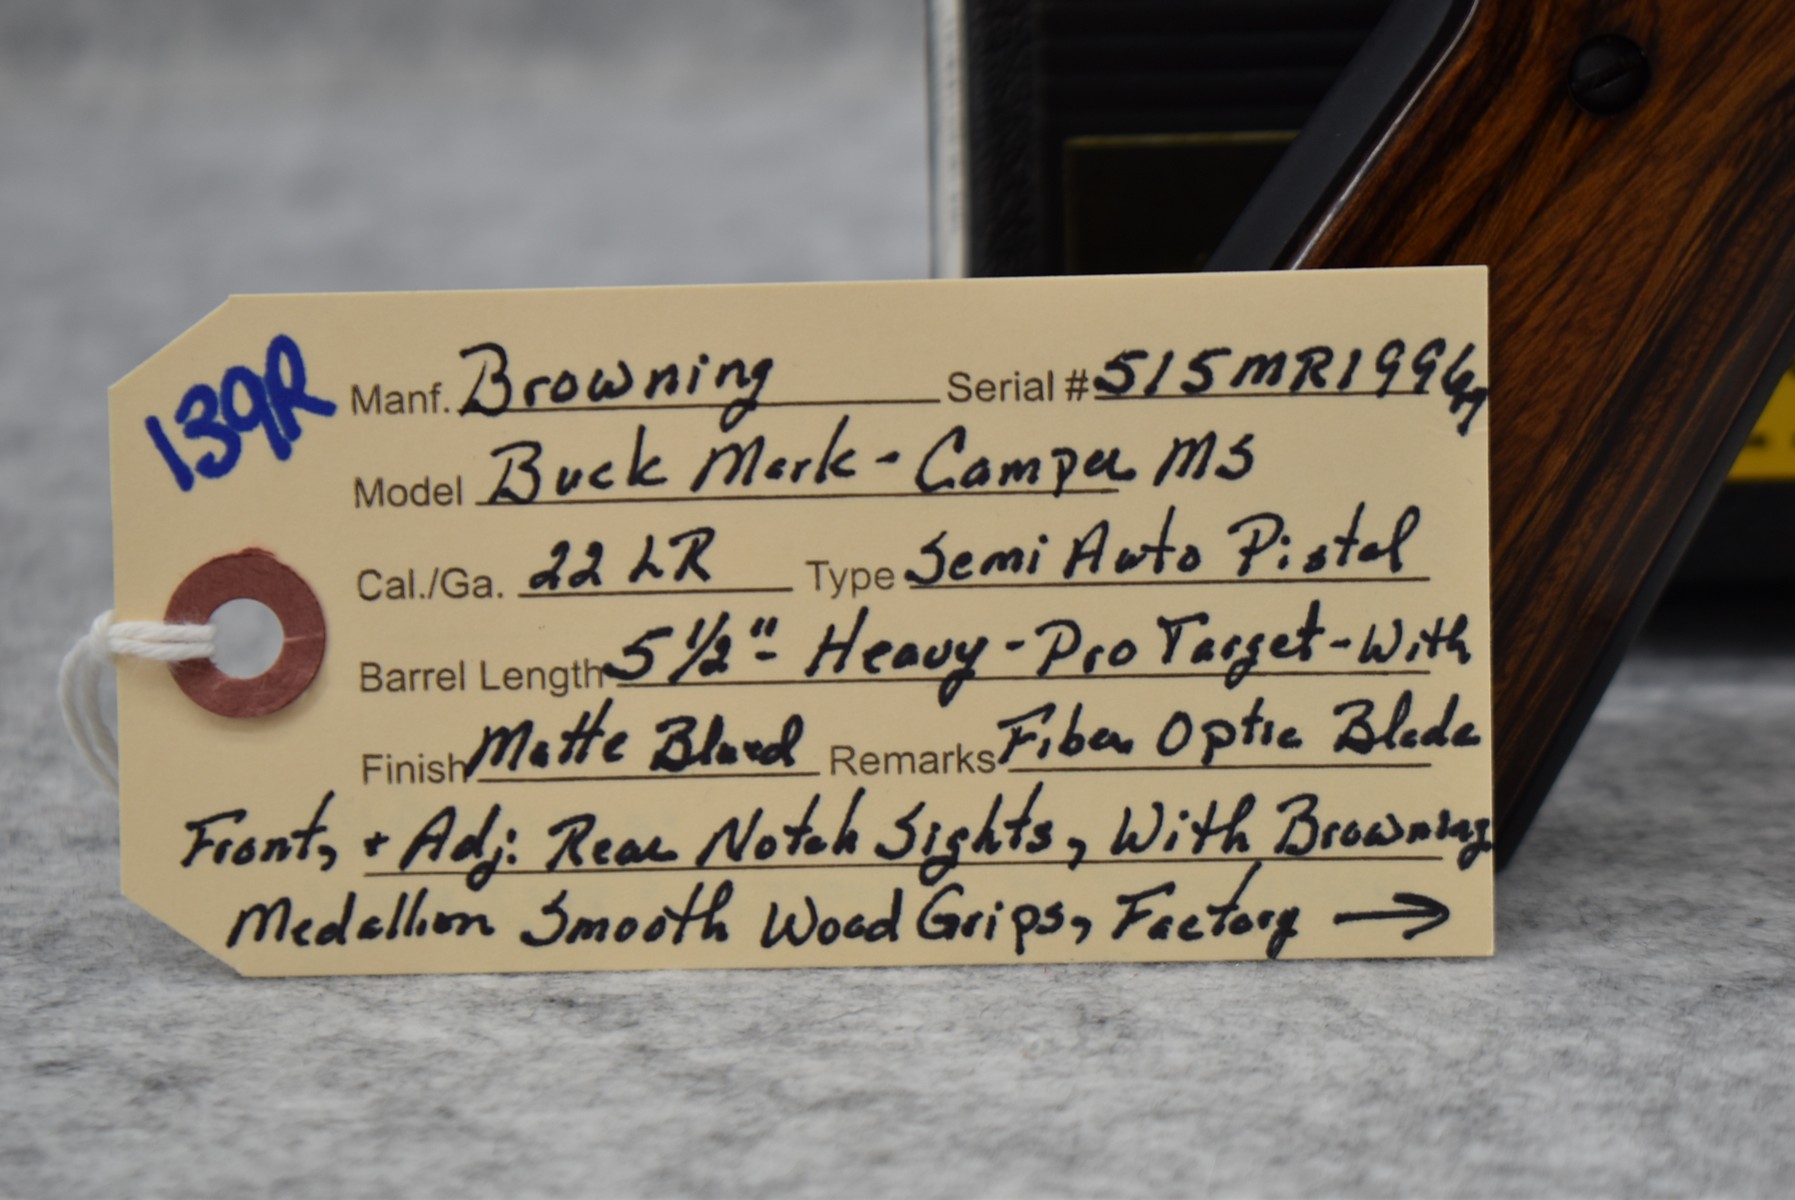 139R
Manf. Browning Serial # 515MR19967
Model Buck Mark - Camper MS
Cal./Ga. 22 LR Type Semi Auto Pistol
Barrel Length 5 1/2" - Heavy - Pro Target - With
Finish Matte Blued Remarks Fiber Optic Blade
Front, + Adj. Rear Notch Sights, With Browning
Medallion Smooth Wood Grips, Factory →